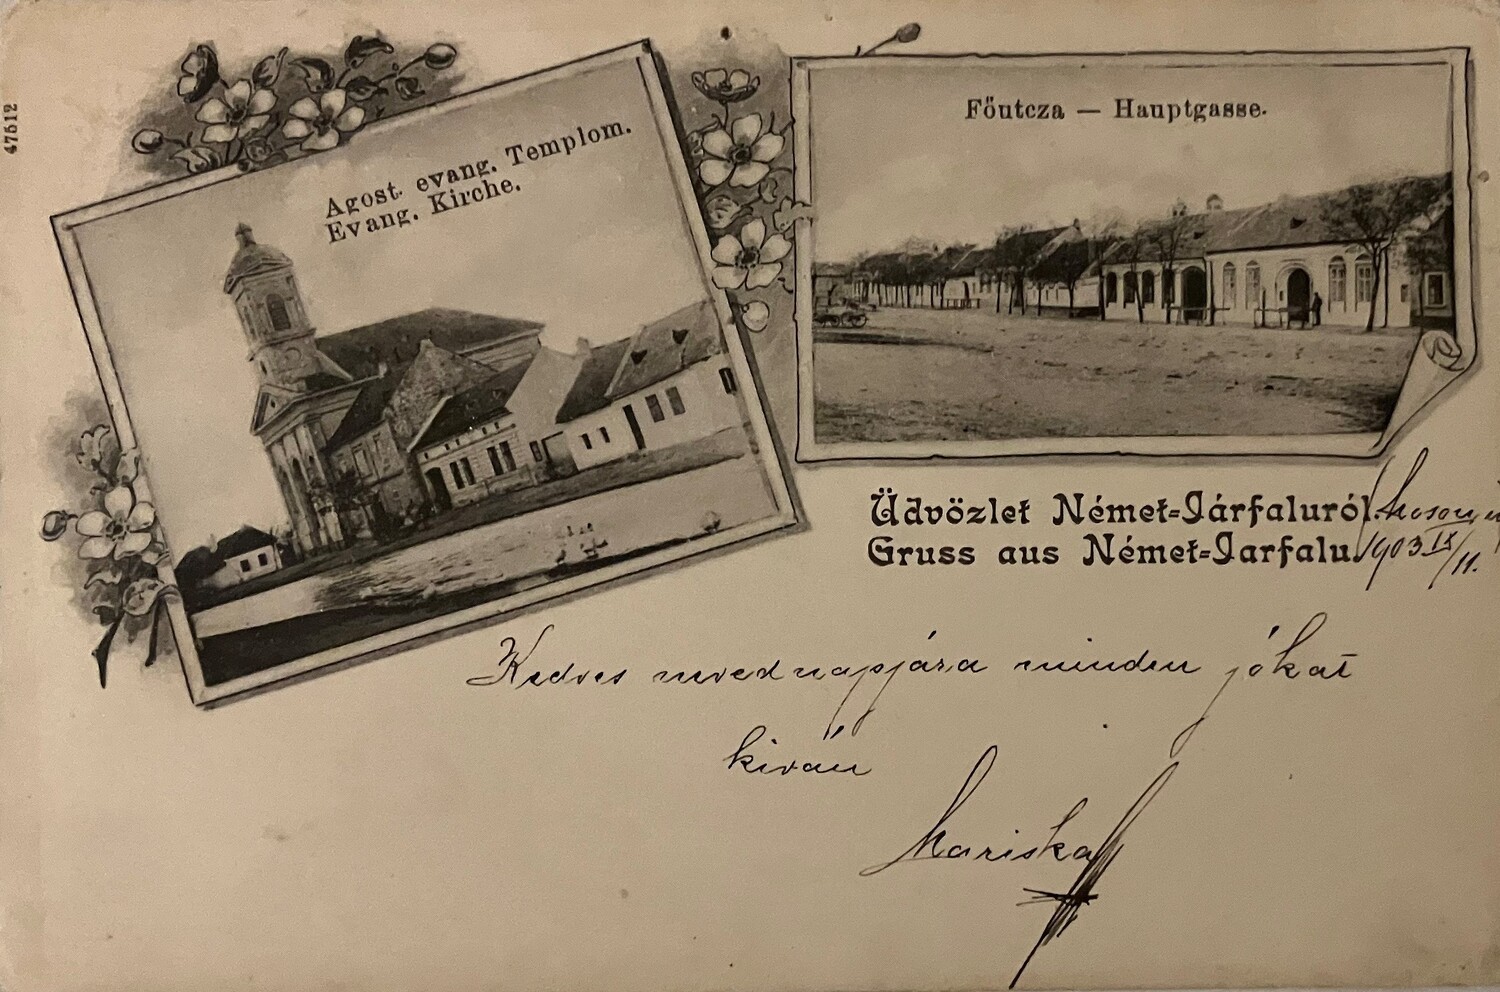 47512
Agost. evang. Templom.
Evang. Kirche.
Főutcza — Hauptgasse.
Üdvözlet Német-Járfaluról.
Gruss aus Német-Jarfalu.
1903 IX/11.
Kedves nevednapjára minden jókat
kiván
Mariska